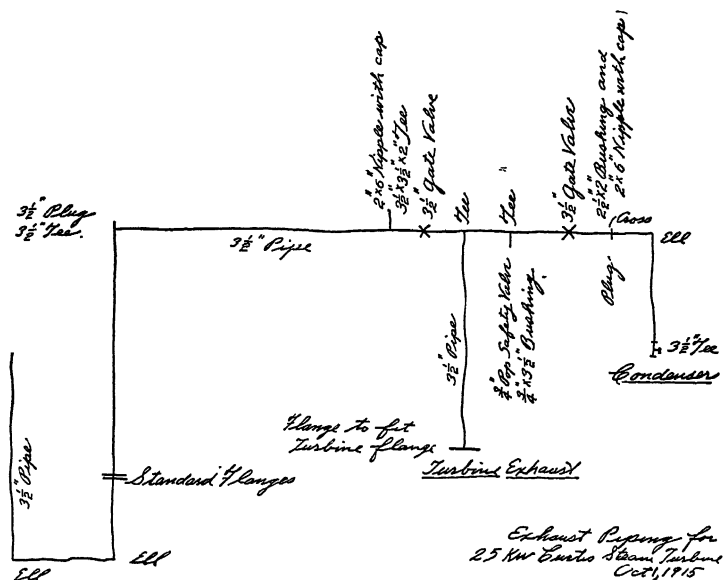 2"x6" Nipple with cap
3½"x3½"x2" Tee
3½" Gate Valve
Tee
Tee "
3½" Gate Valve
2½"x2" Bushing and
2"x6" Nipple with cap
Cross
3½" Plug
3½" Tee.
3½" Pipe
Ell
Plug
3½" Pipe
¾" Pop Safety Valve
¾"x3½" Bushing.
3½" Tee
Condenser
Flange to fit
Turbine flange
Turbine Exhaust
3½" Pipe
Standard Flanges
Ell
Ell
Exhaust Piping for
25 KW Curtis Steam Turbine
Oct 1, 1915